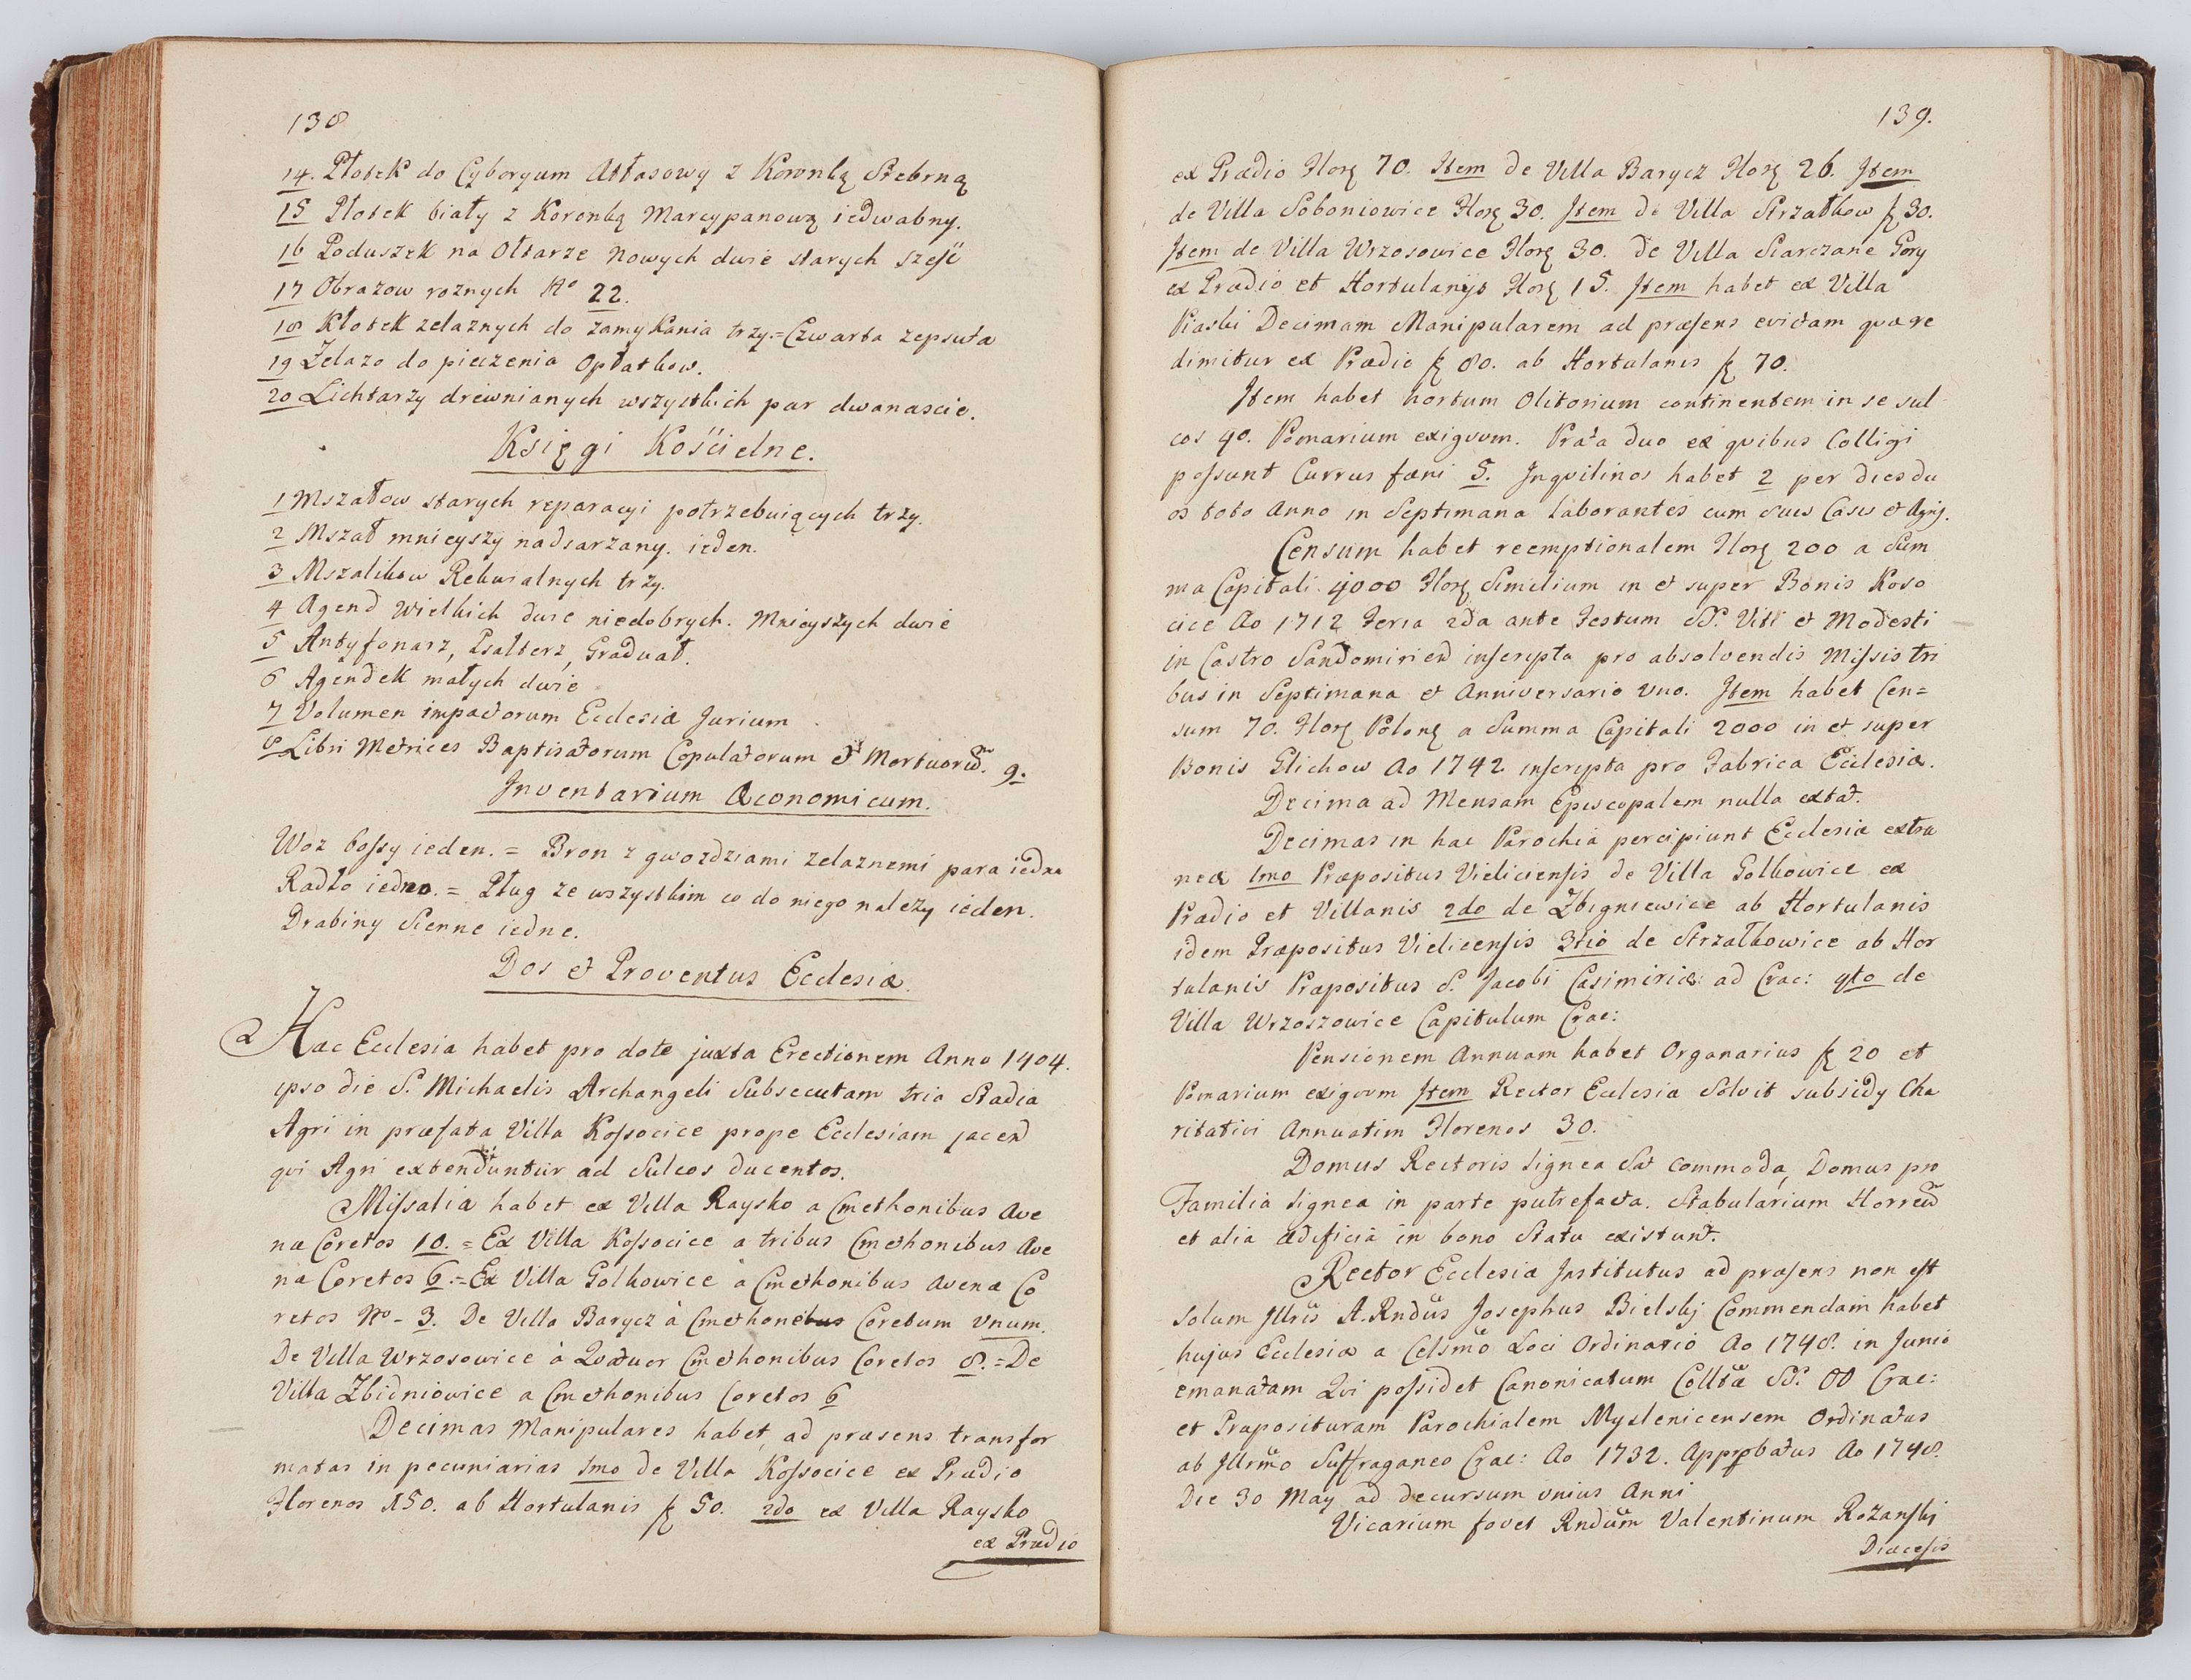 138
14. Płotek do Cyboryum Atłasowy z Koronką Srebrną
15 Płotek biały z Koronką Marcypanową iedwabny.
16 Poduszek na Ołtarze Nowych dwie starych sześć
17 Obrazow roznych No 22.
18 Kłotek zelaznych do zamykania trzy.=Czwarta zepsuta
19 Żelazo do pieczenia Opłatkow.
20 Lichtarzy drewnianych wszystkich par dwanascie.
Księgi Kościelne.
1 Mszałow starych reparacyi potrzebuiących trzy.
2 Mszał mnieyszy nadsarzany. ieden.
3 Mszalikow Rekwialnych trzy.
4 Agend Wielkich dwie niedobrych. Mnieyszych dwie
5 Antyfonarz, Psałterz, Graduał.
6 Agendek małych dwie
7 Volumen impactorum Ecclesiæ Jurium
8 Libri Metrices Baptisatorum Copulatorum et Mortuorum. 9.
Inventarium Œconomicum.
Woz bossy ieden. = Bron z gwozdziami zelaznemi para iedna
Radło iedno. = Pług ze wszystkim co do niego nalezy ieden.
Drabiny Sienne iedne.
Dos et Proventus Ecclesiæ.
Hæc Ecclesia habet pro dote juxta Erectionem Anno 1404.
ipso die S. Michaelis Archangeli Subsecutam tria Stadia
Agri in præfata Villa Kossocice prope Ecclesiam jacen
qvi Agri extenduntur ad Sulcos ducentos.
Missalia habet ex Villa Raysko a Cmethonibus Ave
næ Coretos 10. = Ex Villa Kossocice a tribus Cmethonibus Ave
næ Coretos 6.=Ex Villa Golkowice à Cmethonibus avenæ Co
retos No - 3. De Villa Barycz à Cmethone Coretum Vnum.
De Villa Wrzosowice à Qvatuor Cmethonibus Coretos 8.=De
Villa Zbidniowice a Cmethonibus Coretos 6
Decimas Manipulares habet, ad præsens transfor
matas in pecuniarias 1mo de Villa Kossocice ex Prædio
Florenos 150. ab Hortulanis fl 50. 2do ex Villa Raysko
ex Prædio
139.
ex Prædio Flor 70. Item de Villa Barycz Flor 26. Item
de Villa Soboniowice Flor 30. Item de Villa Strzałkow fl 30.
Item de Villa Wrzosowice Flor 30. de Villa Siarczane Gory
ex Prædio et Hortulanijs Flor 15. Item habet ex Villa
Piaski Decimam Manipularem ad præsens evictam quæ re
dimitur ex Prædio fl 80. ab Hortulanis fl 70.
Item habet hortum Olitorium continentem in se sul
cos 40. Pomarium exigvum. Prata duo ex qvibus Colligi
possunt Currus fæni 5. Inqvilinos habet 2 per dies du
os toto Anno in Septimana laborantes cum suis Casis et Agris.
Censum habet reemptionalem Flor 200 a Sum
ma Capitali 4000 Flor Similium in et super Bonis Koso
cice Ao 1712 Feria 2da ante Festum SS. Viti et Modesti
in Castro Sandomirien inscripta pro absolvendis Missis tri
bus in Septimana et Anniversario Vno. Item habet Cen=
sum 70. Flor Polon a Summa Capitali 2000 in et super
Bonis Glichow Ao 1742 inscripta pro Fabrica Ecclesiæ.
Decima ad Mensam Episcopalem nulla extat.
Decimas in hac Parochia percipiunt Ecclesiæ extra
neæ 1mo Præpositus Vieliciensis de Villa Golkowice ex
Prædio et Villanis 2do de Zbigniewice ab Hortulanis
idem Præpositus Vieliceensis 3tio de Strzałkowice ab Hor
tulanis Præpositus S. Jacobi Casimiriæ ad Crac: 4to de
Villa Wrzoszowice Capitulum Crac:
Pensionem Annuam habet Organarius fl 20 et
Pomarium exigvum Item Rector Ecclesiæ Solvit subsidy Cha
ritativi Annuatim Florenos 30.
Domus Rectoris lignea Sat commoda, Domus pro
Familia lignea in parte putrefacta. Stabularium Horreum
et alia ædificia in bono Statu existunt.
Rector Ecclesiæ Institutus ad præsens non est
solum Jllris A.Rndus Josephus Bielskj Commendam habet
hujus Ecclesiæ a Celsmo Loci Ordinario Ao 1748. in Junio
emanatam Qvi possidet Canonicatum Colltæ SS. OO Crac:
et Præposituram Parochialem Myslenicensem Ordinatus
ab Jllrmo Suffraganeo Crac: Ao 1732. Approbatus Ao 1748.
Die 30 May ad decursum vnius Anni
Vicarium fovet Rndum Valentinum Rozanskj
Diæcesis